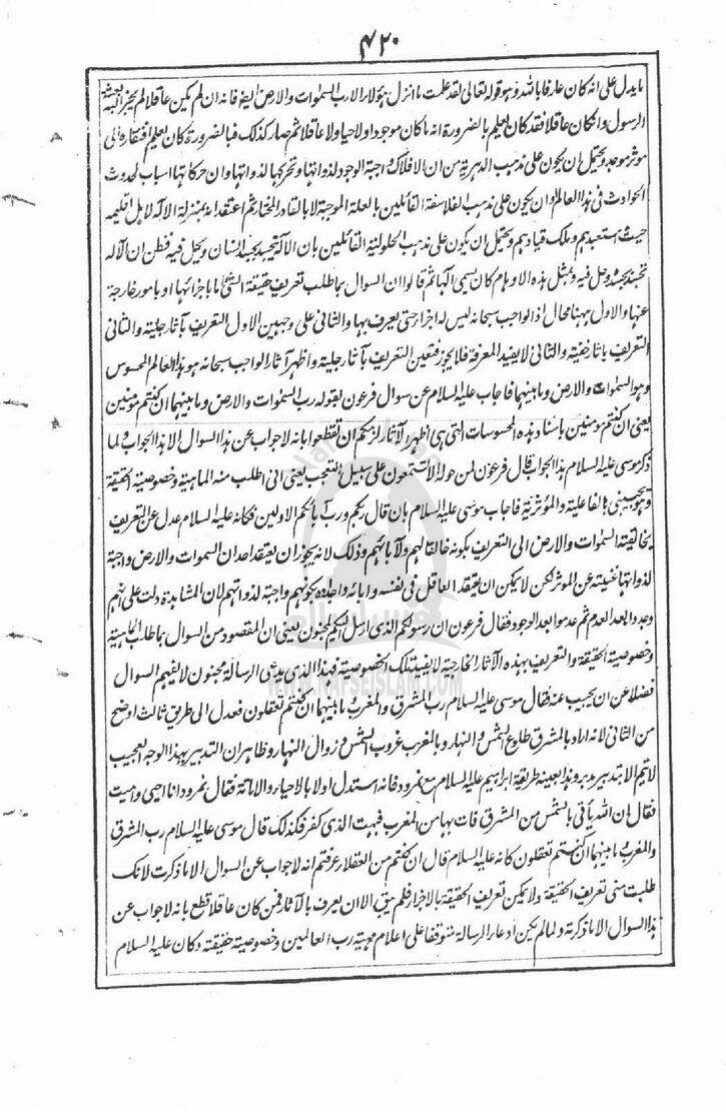 ۴۲۰
مايدل على انه كان عارفا بالله وهو قوله تعالى لقد علمت ما انزل هؤلاء الا رب السموات والارض ايضا فانه ان لم يكن عاقلا لم يجز البتة بعثة
الرسول وان كان عاقلا فقد كان لعليم بالضرورة انه ما كان موجودا ولا حيا ولا عاقلا ثم صار كذلك فبالضرورة كان لعليم افتقاره الى
موثر موجد ويحتمل ان يكون على مذهب الدهرية من ان الافلاك واجبة الوجود لذواتها وتحركها لذواتها وان حركاتها اسباب لحدوث
الحوادث فى هذا العالم او ان يكون على مذهب الفلاسفة القائلين بالعلة الموجبة لا بالقادر المختار ثم اعتقد انه بمنزلة الاله لاهل اقليمه
حيث استعبدهم وملك قيادهم ويحتمل ان يكون على مذهب الحلولية القائلين بان الاله يتجسد بجسد انسان ويحل فيه فظن ان الاله
تجسد بجسده وحل فيه وبمثل هذه الاوهام كان يسمى الها ثم قالوا ان السوال بما طلب تعريف حقيقة الشئ اما باجزائها او بامور خارجة
عنها والاول ههنا محال اذ الواجب سبحانه ليس له اجزاء حتى يعرف بها والثانى على وجهين الاول التعريف بآثار جلية والثانى
التعريف بآثار خفية والثانى لا يفيد المعرفة فلا يجوز فتعين التعريف بآثار جلية واظهر آثار الواجب سبحانه هو هذا العالم المحسوس
وهو السموات والارض وما بينهما فاجاب عليه السلام عن سوال فرعون بقوله رب السموات والارض وما بينهما ان كنتم موقنين
يعنى ان كنتم موقنين باسناد هذه المحسوسات التى هى اظهر الآثار لزمكم ان تقطعوا بانه لا جواب عن هذا السوال الا هذا الجواب ولما
ذكر موسى عليه السلام هذا الجواب قال فرعون لمن حوله الا تستمعون على سبيل التعجب يعنى انى اطلب منه الماهية وخصوصية الحقيقة
وهو يجيبنى بالفاعلية والمؤثرية فاجاب موسى عليه السلام بان قال ربكم ورب آبائكم الاولين فكانه عليه السلام عدل عن التعريف
بخالقية السموات والارض الى التعريف بكونه خالقا لهم ولآبائهم وذلك لانه يجوز ان يعتقد احد ان السموات والارض واجبة
لذواتها غنية عن الموثر لكن لا يمكن ان يعتقد العاقل فى نفسه وابائه واجداده بكونهم واجبة لذواتهم لان المشاهدة دلت على انهم
وجدوا بعد العدم ثم عدموا بعد الوجود فقال فرعون ان رسولكم الذى ارسل اليكم لمجنون يعنى ان المقصود من السوال بما طلب الماهية
وخصوصية الحقيقة والتعريف بهذه الآثار الخارجة لا يفيد تلك الخصوصية فهذا الذى يدعى الرسالة مجنون لا يفهم السوال
فضلا عن ان يجيب عنه فقال موسى عليه السلام رب المشرق والمغرب وما بينهما ان كنتم تعقلون فعدل الى طريق ثالث اوضح
من الثانى لانه اراد بالمشرق طلوع الشمس والنهار وبالمغرب غروب الشمس وزوال النهار وظاهر ان التدبير بهذا الوجه العجيب
لا يتم الا بتدبير مدبر وهذا بعينه طريقة ابراهيم عليه السلام مع نمرود فانه استدل اولا بالاحياء والاماتة فقال نمرود انا احيى واميت
فقال ان الله يأتى بالشمس من المشرق فات بها من المغرب فبهت الذى كفر فكذلك قال موسى عليه السلام رب المشرق
والمغرب وما بينهما ان كنتم تعقلون كانه عليه السلام قال ان كنتم من العقلاء عرفتم انه لا جواب عن السوال الا ما ذكرت لانك
طلبت منى تعريف الحقيقة ولا يمكن تعريف الحقيقة بالاجزاء فلم يبق الا ان يعرف بالآثار فمن كان عاقلا قطع بانه لا جواب عن
هذا السوال الا ما ذكرته ولما لم يكن ادعاء الرسالة متوقفا على اعلام مهية رب العالمين وخصوصية حقيقته وكان عليه السلام
WWW.NAFSEISLAM.COM